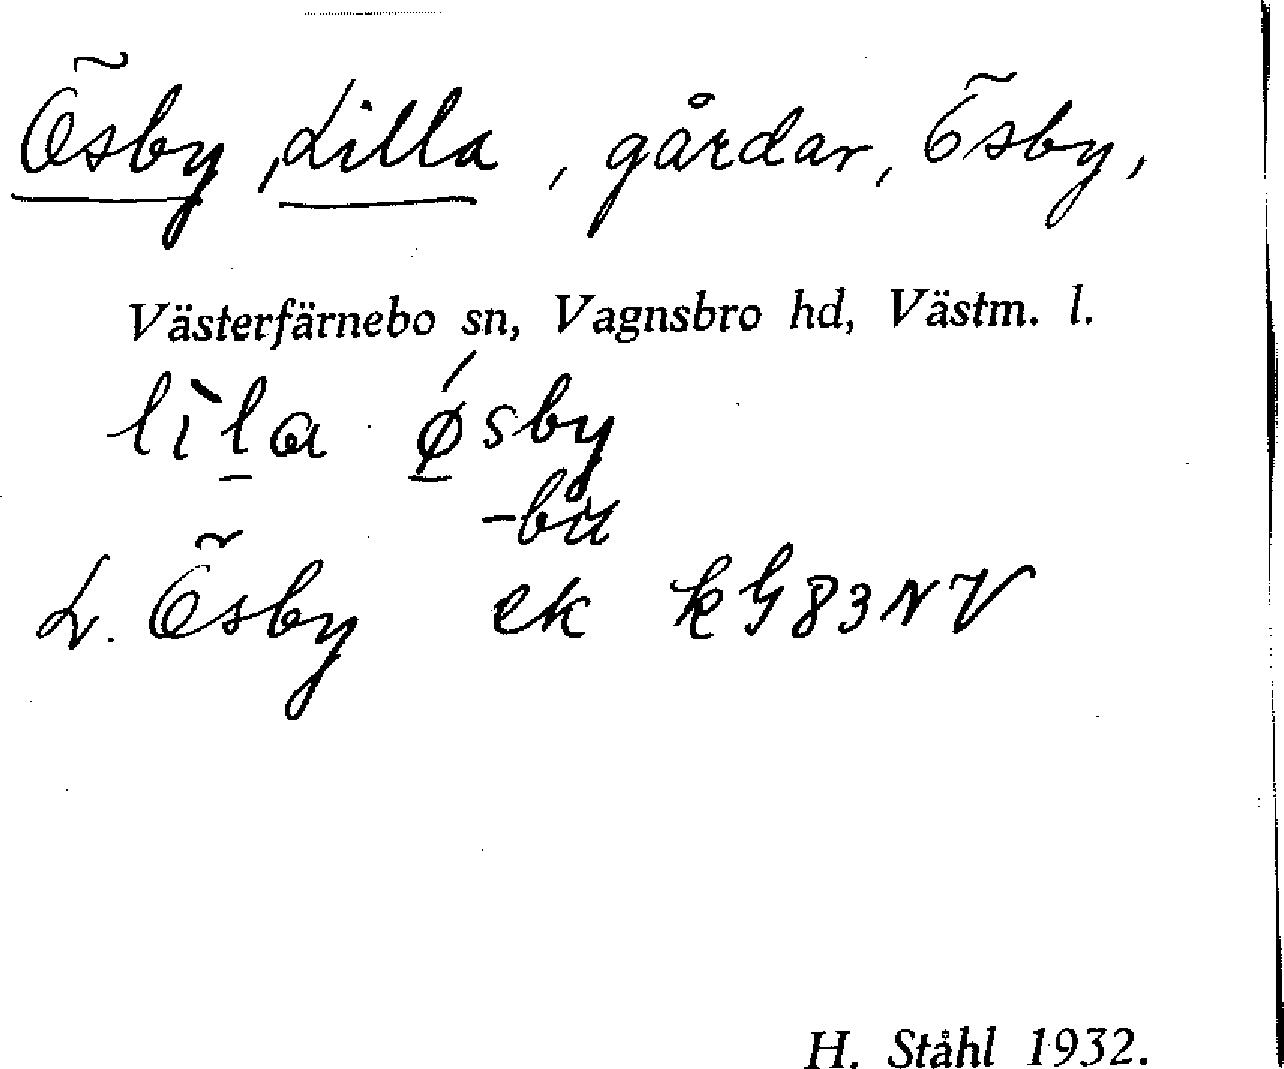 Ösby, Lilla, gårdar, Ösby,
Västerfärnebo sn, Vagnsbro hd, Västm. l.
lìl̲a ǿ̲sby
-bu
L. Ösby ek kG83NV
H. Ståhl 1932.